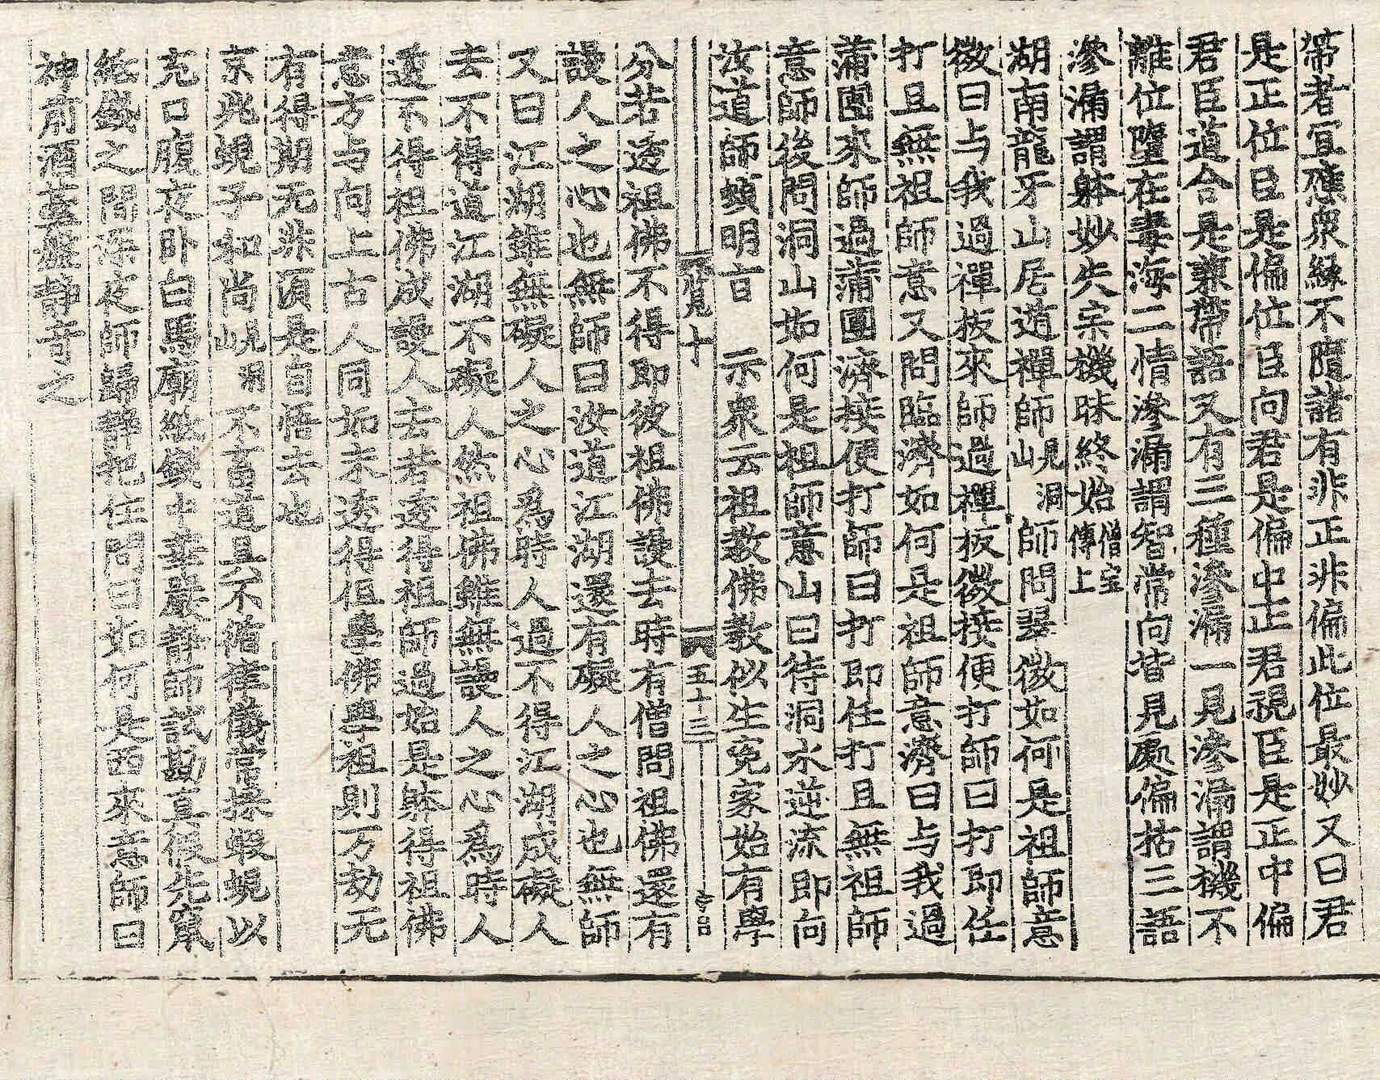 帶者冥應衆緣不隨諸有非正非偏此位最妙又曰君
是正位臣是偏位臣向君是偏中正君視臣是正中偏
君臣道合是兼帶語又有三種滲漏一見滲漏謂機不
離位墮在毒海二情滲漏謂智常向背見處偏枯三語
滲漏謂躰妙失宗機昧終始僧宝傳上
湖南龍牙山居遁禪師見洞山師問翠微如何是祖師意
微曰与我過禪板來師過禪板微接便打師曰打即任
打且無祖師意又問臨濟如何是祖師意濟曰与我過
蒲團來師過蒲團濟接便打師曰打即任打且無祖師
意師後問洞山如何是祖師意山曰待洞水逆流即向
汝道師頓明旨 示衆云祖教佛教似生冤家始有學
覽十 五十三
分若透祖佛不得即彼祖佛謾去時有僧問祖佛還有
謾人之心也無師曰汝道江湖還有礙人之心也無師
又曰江湖雖無礙人之心爲時人過不得江湖成礙人
去不得道江湖不礙人然祖佛雖無謾人之心爲時人
透不得祖佛成謾人去若透得祖師過始是躰得祖佛
意方与向上古人同如未透得但學佛與祖則万劫无
有得期无非須是自悟去也
京兆蜆子和尚見洞山不畜道具不循律儀常採蝦蜆以
充口腹夜卧白馬廟紙錢中華嚴靜師試勘真假先竄
紙錢之間深夜師歸靜把住問曰如何是西來意師曰
神前酒臺盤靜奇之